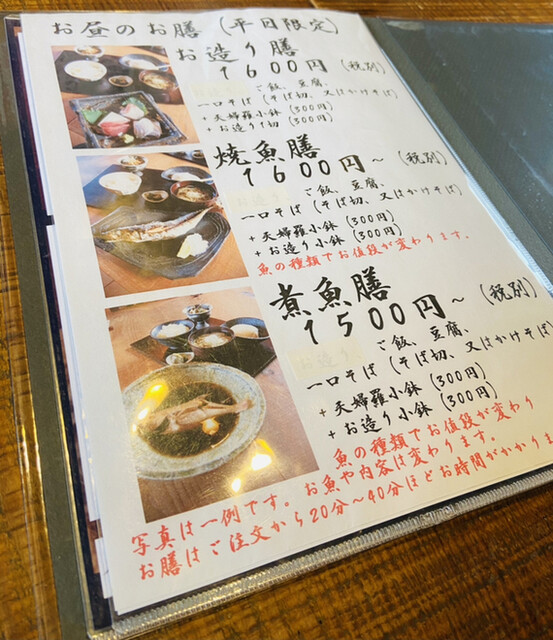 お昼のお膳(平日限定)
お造り膳
1600円(税別)
ご飯、豆腐、
一口そば(そば切、又はかけそば)
+天婦羅小鉢(300円)
+お造り1切(300円)
焼魚膳
1600円〜(税別)
ご飯、豆腐、
一口そば(そば切、又はかけそば)
+天婦羅小鉢(300円)
+お造り小鉢(300円)
魚の種類でお値段が変わります。
煮魚膳
1500円〜(税別)
ご飯、豆腐、
一口そば(そば切、又はかけそば
+天婦羅小鉢(300円)
+お造り小鉢(300円)
魚の種類でお値段が変わり
写真は一例です。お魚や内容は変わります。
お膳はご注文から20分〜40分ほどお時間がかかりま